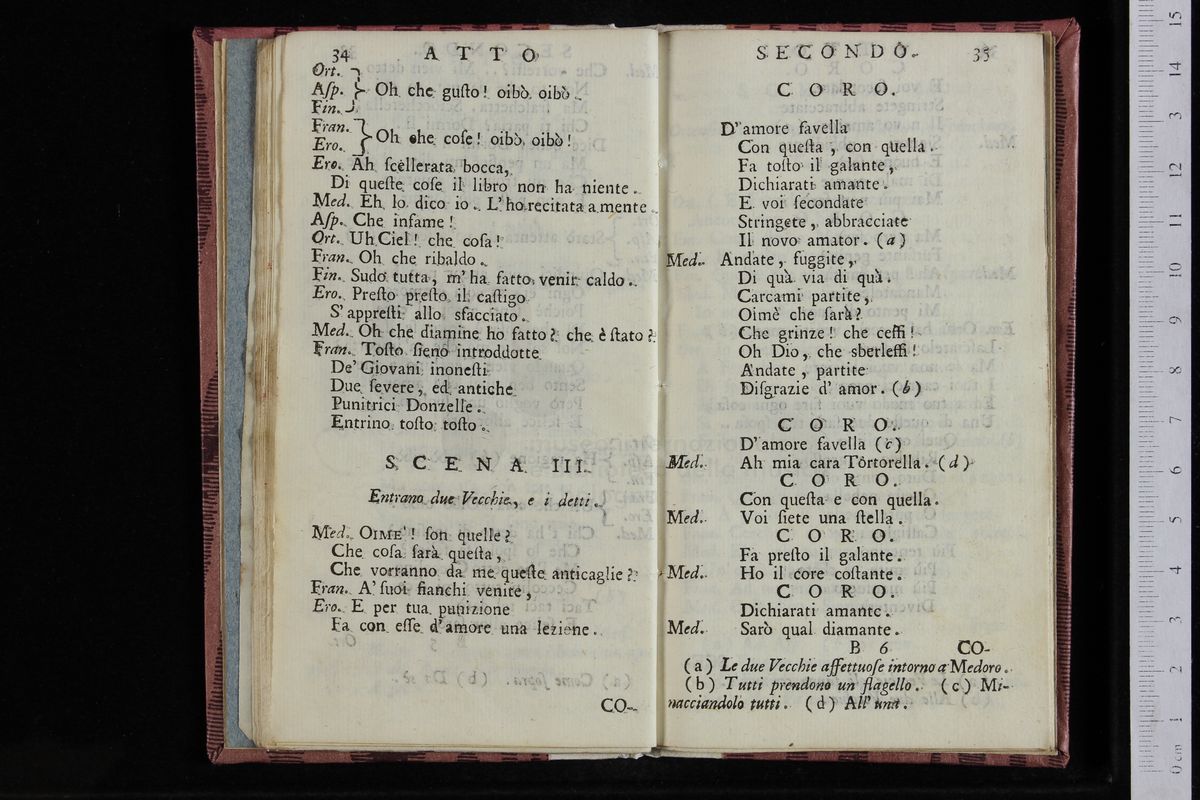 34 ATTO
Ort.
Aſp. Oh che guſto! oibò, oibò
Fin.
Fran.
Ero. Oh che coſe! oibò, oibò!
Ero. Ah ſcellerata bocca,
Di queſte coſe il libro non ha niente.
Med. Eh lo dico io. L'ho recitata a mente.
Aſp. Che infame!
Ort. Uh Ciel! che coſa!
Fran. Oh che ribaldo.
Fin. Sudo tutta, m'ha fatto venir caldo.
Ero. Preſto preſto il caſtigo
S'appreſti allo sfacciato.
Med. Oh che diamine ho fatto? che è ſtato?
Fran. Toſto ſieno introddotte
De' Giovani inoneſti
Due ſevere, ed antiche
Punitrici Donzelle.
Entrino toſto toſto.
SCENA III.
Entrano due Vecchie, e i detti.
Med. OIME'! ſon quelle?
Che coſa ſarà queſta,
Che vorranno da me queſte anticaglie?
Fran. A' ſuoi fianchi venite,
Ero. E per tua punizione
Fa con eſſe d'amore una lezione.
CO-
SECONDO. 35
CORO.
D'amore favella
Con queſta, con quella.
Fa toſto il galante,
Dichiarati amante.
E voi ſecondate
Stringete, abbracciate
Il novo amator. (a)
Med. Andate, fuggite,
Di quà via di quà.
Carcami partite,
Oimè che ſarà?
Che grinze! che ceffi!
Oh Dio, che sberleffi!
Andate, partite
Diſgrazie d' amor. (b)
CORO.
D'amore favella (c)
Med. Ah mia cara Tòrtorella. (d)
CORO.
Con queſta e con quella.
Med. Voi ſiete una ſtella.
CORO.
Fa preſto il galante.
Med. Ho il core coſtante.
CORO.
Dichiarati amante.
Med. Sarò qual diamante.
B 6 CO-
(a) Le due Vecchie affettuoſe intorno a Medoro.
(b) Tutti prendono un flagello. (c) Mi-
nacciandolo tutti. (d) All' una.